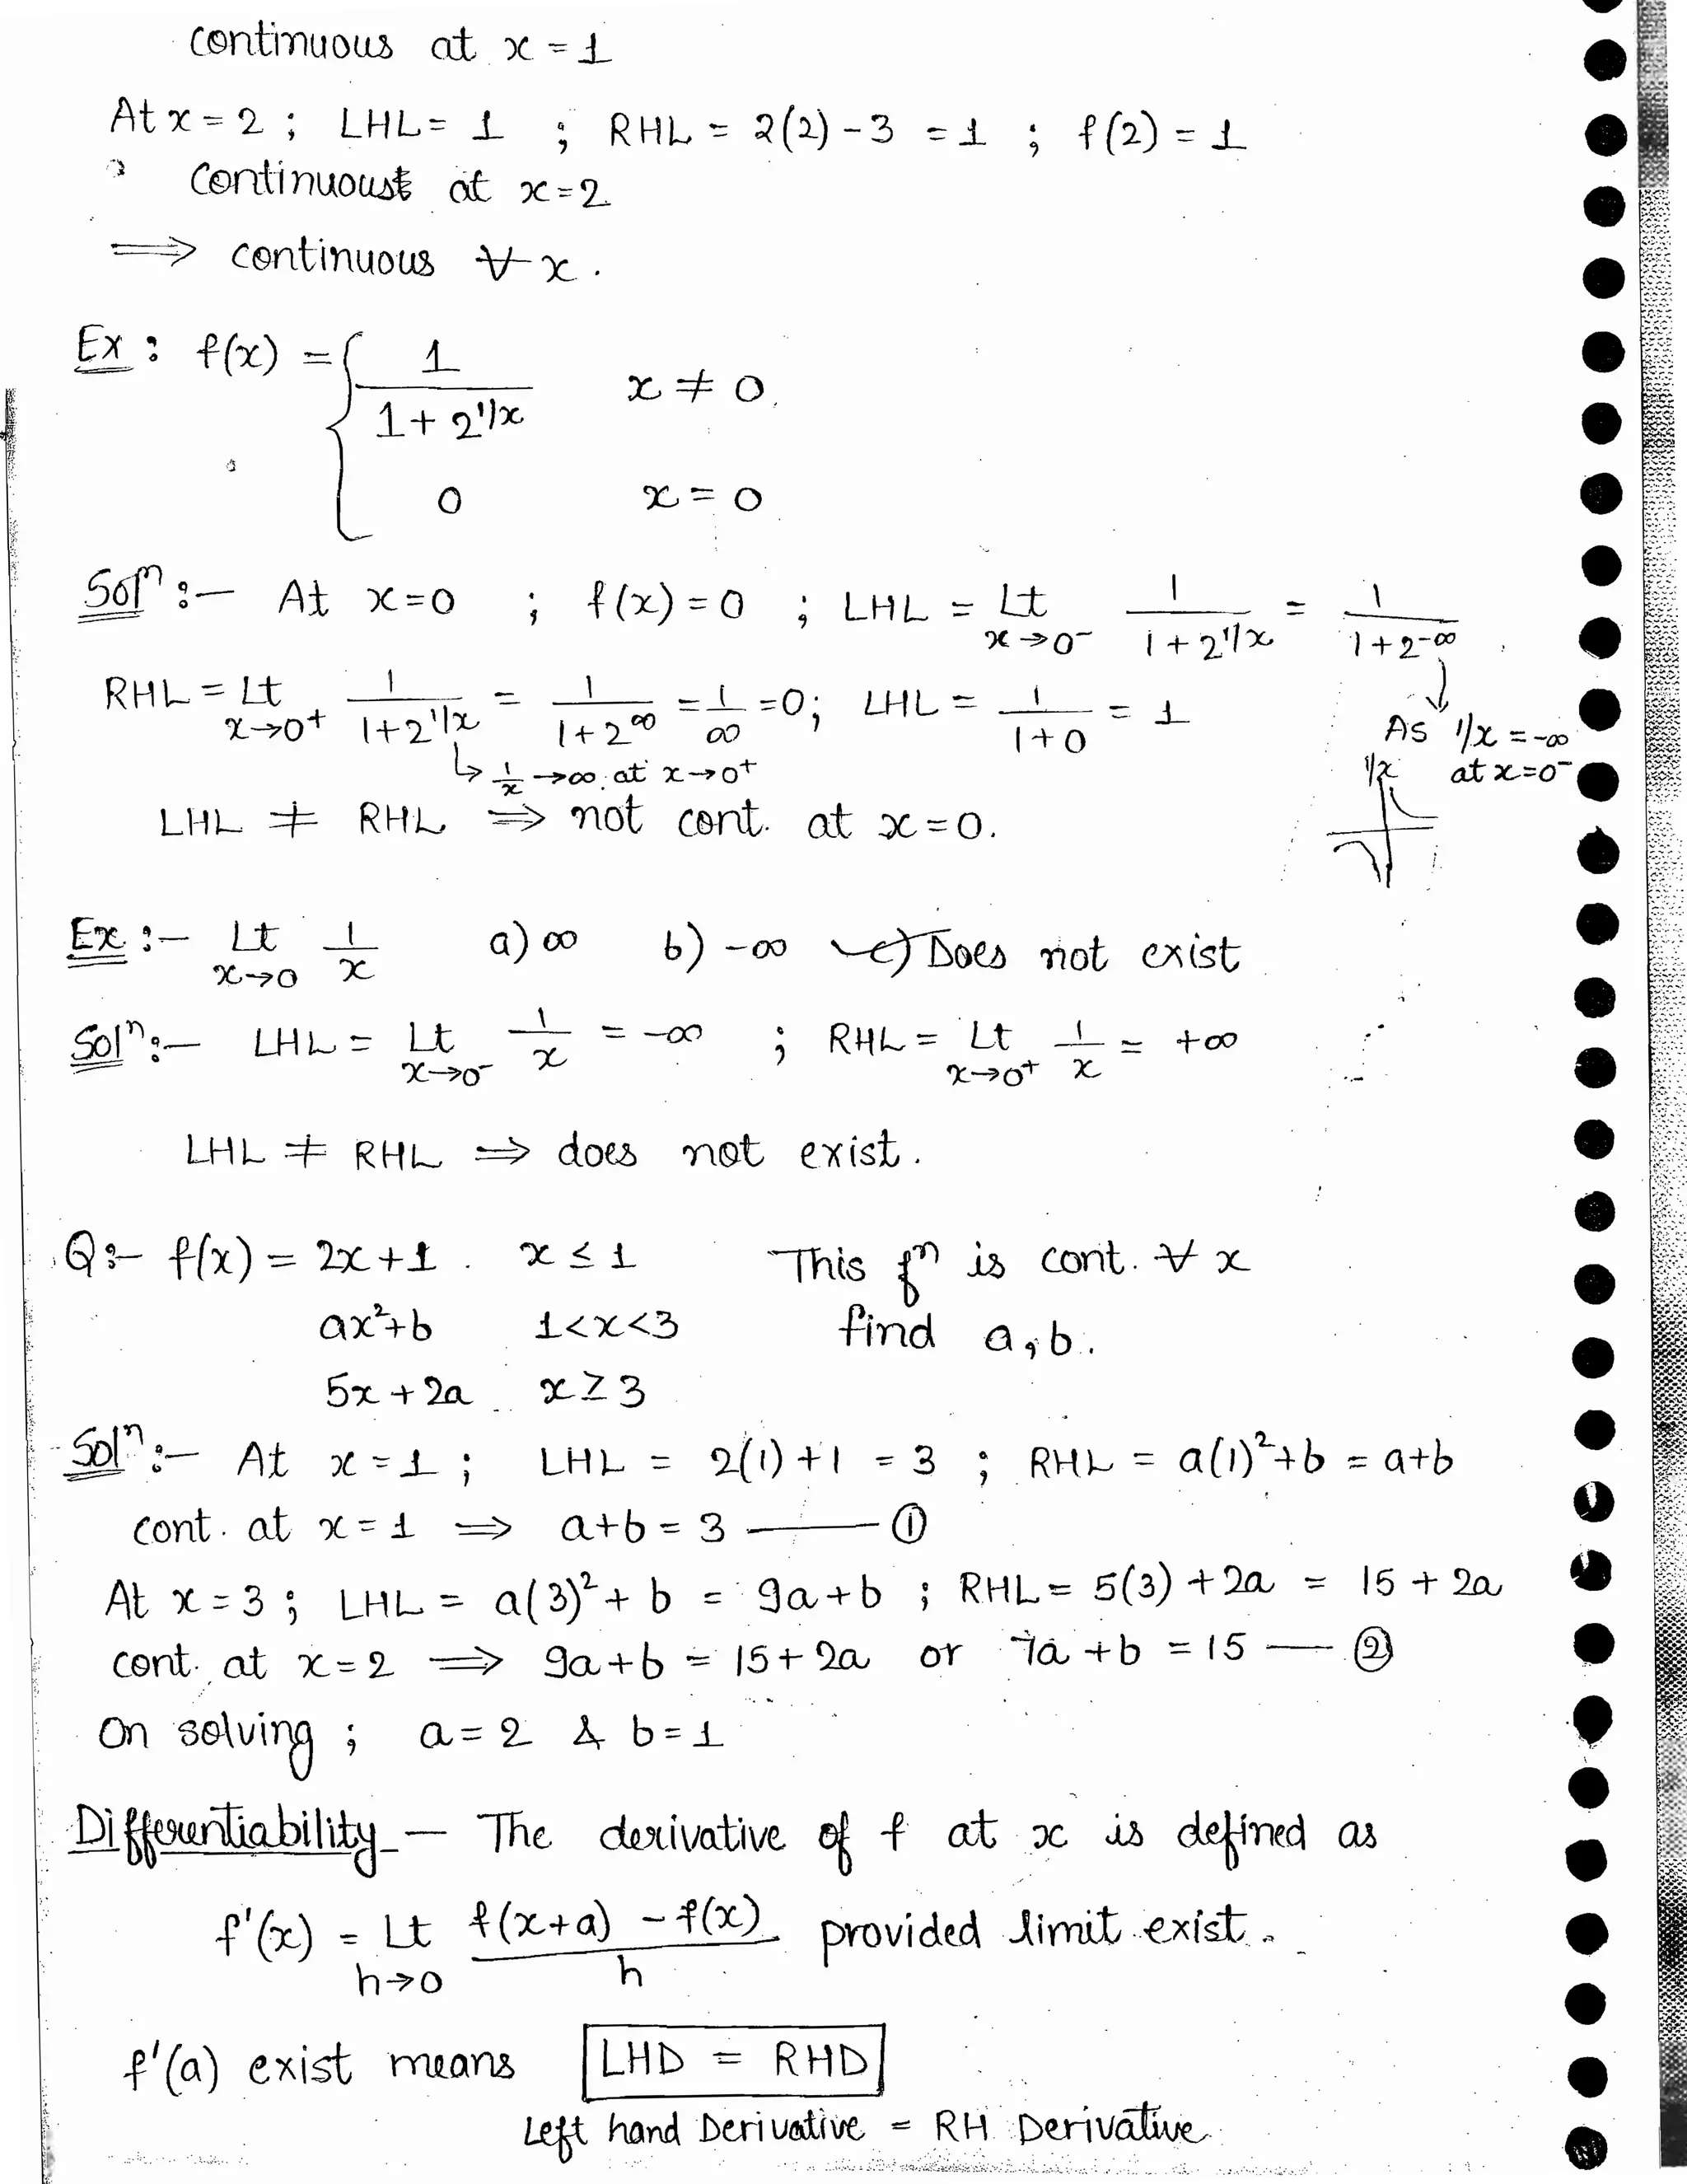 continuous at x = 1
At x = 2 ; LHL = 1 ; RHL = 2(2) - 3 = 1 ; f(2) = 1
continuoust at x = 2
⟹ continuous ∀ x .
Ex : f(x) = { 1/(1 + 2^(1/x)) x ≠ 0
0 x = 0
Solⁿ :- At x = 0 ; f(x) = 0 ; LHL = Lt x→0⁻ 1/(1 + 2^(1/x)) = 1/(1 + 2^(-∞))
RHL = Lt x→0⁺ 1/(1 + 2^(1/x)) = 1/(1 + 2^∞) = 1/∞ = 0 ; LHL = 1/(1 + 0) = 1
As 1/x = -∞
at x = 0⁻
1/x
↳ 1/x → ∞ at x → 0⁺
LHL ≠ RHL ⟹ not cont. at x = 0.
Ex :- Lt x→0 1/x a) ∞ b) -∞ ✓c) Does not exist
Solⁿ :- LHL = Lt x→0⁻ 1/x = -∞ ; RHL = Lt x→0⁺ 1/x = +∞
LHL ≠ RHL ⟹ does not exist .
Q :- f(x) = 2x + 1 x ≤ 1 This fⁿ is cont. ∀ x
ax² + b 1 < x < 3 find a, b.
5x + 2a x ≥ 3
Solⁿ :- At x = 1 ; LHL = 2(1) + 1 = 3 ; RHL = a(1)² + b = a + b
cont. at x = 1 ⟹ a + b = 3 —— ①
At x = 3 ; LHL = a(3)² + b = 9a + b ; RHL = 5(3) + 2a = 15 + 2a
cont. at x = 2 ⟹ 9a + b = 15 + 2a or 7a + b = 15 — ②
On solving ; a = 2 & b = 1
Differentiability — The derivative of f at x is defined as
f'(x) = Lt h→0 (f(x+a) - f(x))/h provided limit exist .
f'(a) exist means LHD = RHD
Left hand Derivative = RH Derivative